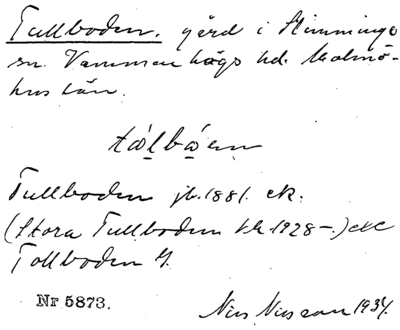 Tullboden. gård i Skimminge
sn. Vemmenhögs hd. Malmö-
hus län.
Tullboden jb. 1881. ek.
(Stora Tullboden tk 1928–) ek
Tollboden
Nr 5873.
Nils Nilsson 1934.